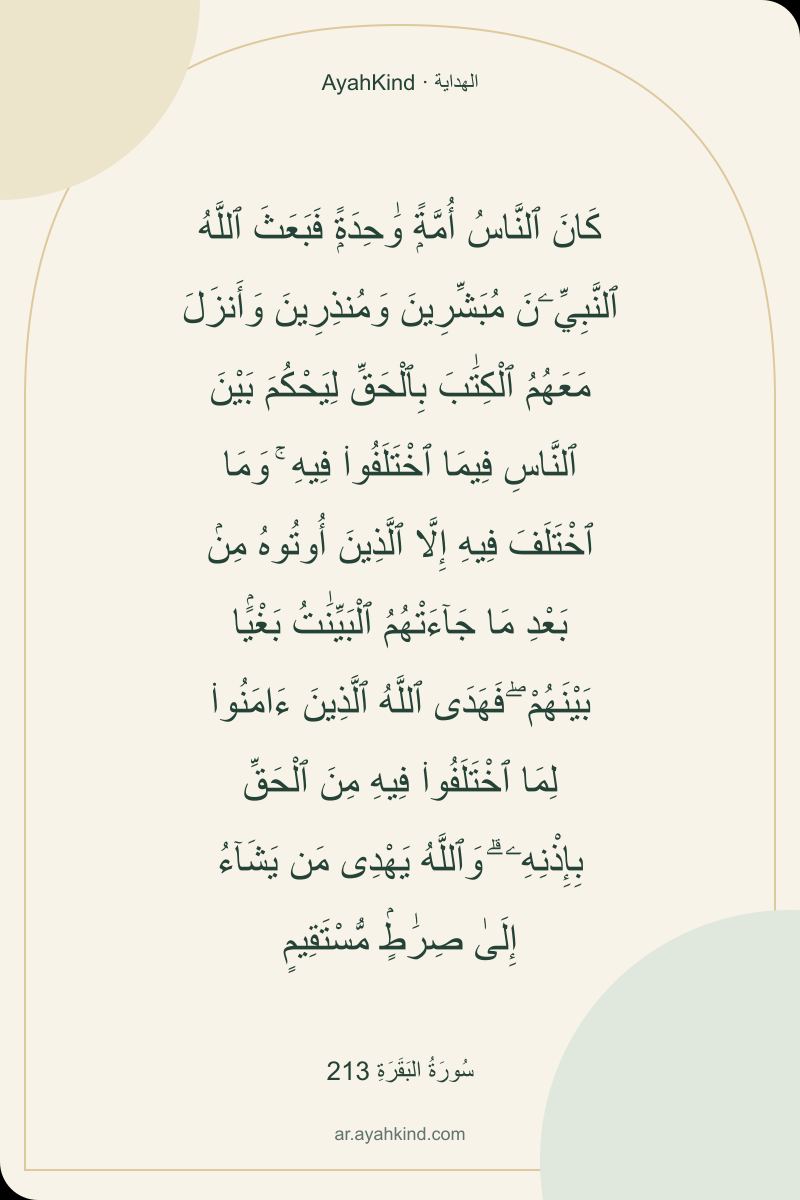 AyahKind · الهداية
كَانَ ٱلنَّاسُ أُمَّةًۭ وَٰحِدَةًۭ فَبَعَثَ ٱللَّهُ
ٱلنَّبِيِّـۧنَ مُبَشِّرِينَ وَمُنذِرِينَ وَأَنزَلَ
مَعَهُمُ ٱلْكِتَٰبَ بِٱلْحَقِّ لِيَحْكُمَ بَيْنَ
ٱلنَّاسِ فِيمَا ٱخْتَلَفُوا۟ فِيهِ ۚ وَمَا
ٱخْتَلَفَ فِيهِ إِلَّا ٱلَّذِينَ أُوتُوهُ مِنۢ
بَعْدِ مَا جَآءَتْهُمُ ٱلْبَيِّنَٰتُ بَغْيًۢا
بَيْنَهُمْ ۖ فَهَدَى ٱللَّهُ ٱلَّذِينَ ءَامَنُوا۟
لِمَا ٱخْتَلَفُوا۟ فِيهِ مِنَ ٱلْحَقِّ
بِإِذْنِهِۦ ۗ وَٱللَّهُ يَهْدِى مَن يَشَآءُ
إِلَىٰ صِرَٰطٍۢ مُّسْتَقِيمٍ
سُورَةُ البَقَرَةِ 213
ar.ayahkind.com